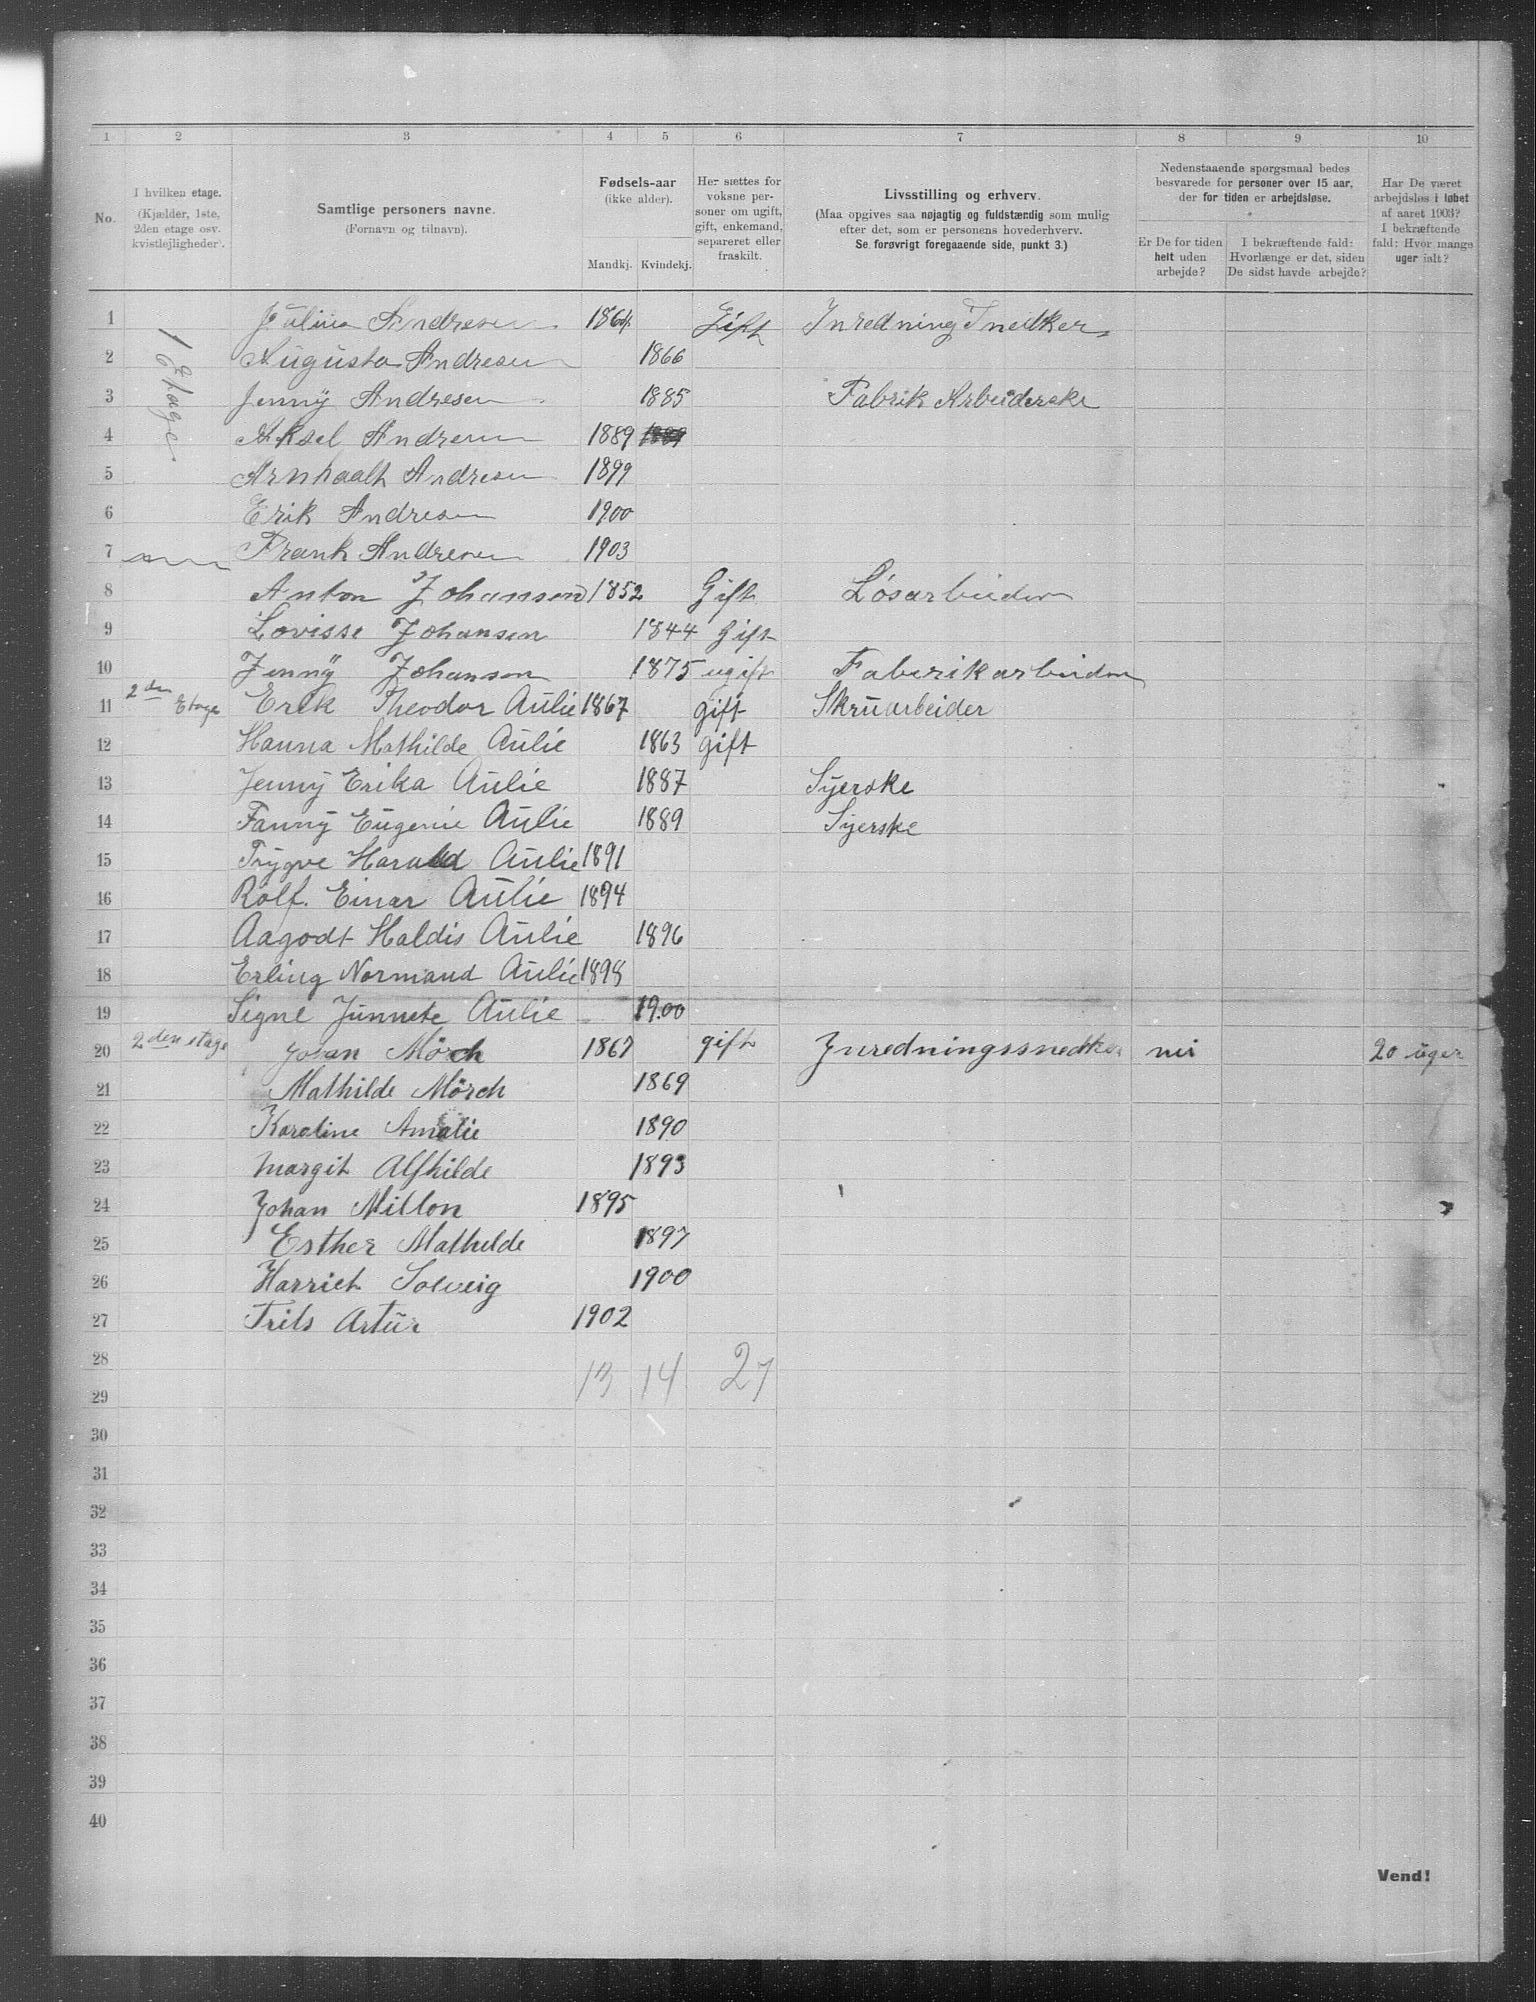 1 2 3 4 5 6 7 8 9 10
No.
I hvilken etage.
(Kjælder, 1ste,
2den etage osv.
kvistlejligheder).
Samtlige personers navne.
(Fornavn og tilnavn).
Fødsels-aar
(ikke alder).
Mandkj. Kvindekj.
Her sættes for
voksne per-
soner om ugift,
gift, enkemand,
separeret eller
fraskilt.
Livsstilling og erhverv.
(Maa opgives saa nøjagtig og fuldstændig som mulig
efter det, som er personens hovederhverv.
Se forøvrigt foregaaende side, punkt 3.)
Nedenstaaende spørgsmaal bedes
besvarede for personer over 15 aar,
der for tiden er arbejdsløse.
Er De for tiden
helt uden
arbejde?
I bekræftende fald:
Hvorlænge er det, siden
De sidst havde arbejde?
Har De været
arbejdsløs i løbet
af aaret 1903?
I bekræftende
fald: Hvor mange
uger ialt?
1 1 Etage Andresen 1864 Gift Inredning Snedker
2 Augusta Andresen 1866
3 Jenny Andresen 1885 Fabrik Arbeiderske
4 Aksel Andresen 1889
5 Andresen 1899
6 Erik Andresen 1900
7 Frank Andresen 1903
8 Anton Johansen 1852 Gift Løsarbeider
9 Lovisse Johansen 1844 Gift
10 Jenny Johansen 1875 ugift Faberikarbeider
11 2den Etage Erik Theodor Aulie 1867 gift Skruarbeider
12 Hanna Mathilde Aulie 1863 gift
13 Jenny Erika Aulie 1887 Syerske
14 Fanny Eugenie Aulie 1889 Syerske
15 Trygve Harald Aulie 1891
16 Rolf. Einar Aulie 1894
17 Aagodt Haldis Aulie 1896
18 Erling Normand Aulie 1898
19 Signe Junnete Aulie 1900
20 2den etage Johan Mörch 1867 gift Inredningssnedker nei 20 uger
21 Mathilde Mörch 1869
22 Karoline Amalie 1890
23 Margit Alfhilde 1893
24 Johan Millon 1895
25 Esther Mathilde 1897
26 Harriet Solveig 1900
27 Frits Artur 1902
28
13 14 27
29
30
31
32
33
34
35
36
37
38
39
40
Vend!